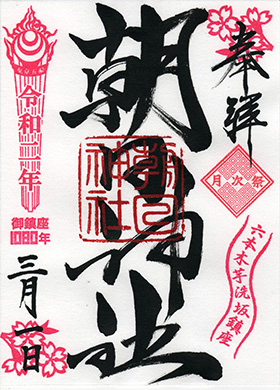 奉拝
月次祭
六本木芋洗坂鎮座
朝日神社
朝日神社
令和二年
御鎮座
1080年
三月一日